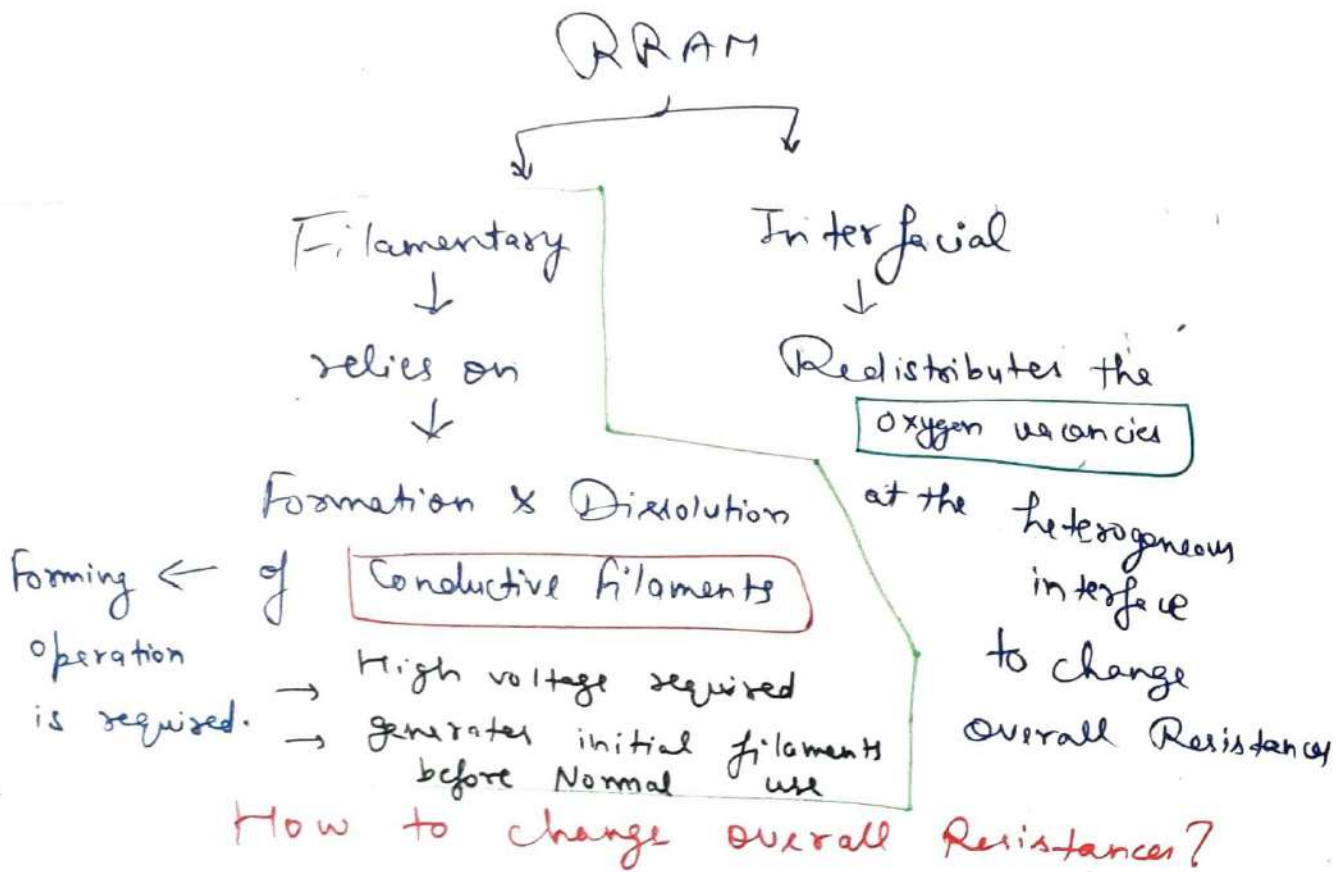 RRAM
Filamentary
relies on
Formation & Dissolution
of Conductive filaments
Forming
operation
is required.
→ High voltage required
→ generates initial filaments
before Normal use
Interfacial
Redistributes the
oxygen vacancies
at the heterogeneous
interface
to change
overall Resistances
How to change overall Resistances?